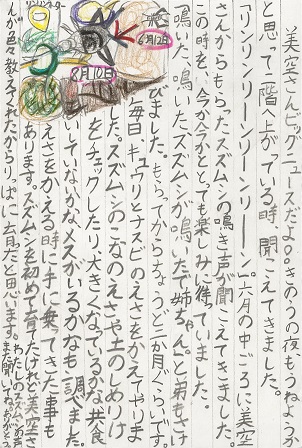 美空さんビッグニュースだよ。きのうの夜もうねようか
と思って二階へ上がっている時、聞こえてきました。
「リンリンリーンリーンリリーン。」六月の中ごろに美空
さんからもらったスズムシの鳴き声が聞こえてきました。
この時を、今か今かととっても楽しみに待っていました。
鳴いた、鳴いたスズムシが鳴いたで姉ちゃん。」と弟もさけ
びました。もらってからちょうど二か月ぐらいです。
毎日キュウリとナスビのえさをかえてやりま
した。スズムシのこなのえさや土のしめりけ
をチェックしたり大きくなっているかな、共食
いしていなかな、メスがいるかなも、調べました。
えさをかえる時に手に乗ってきた事も
あります。スズムシを初めて育てたけれど美空さ
んが色々教えてくれたからりっぱに育ったと思います。
わたしのスズムシの声
また聞いてね。ありがとう
6月12日
8月10日